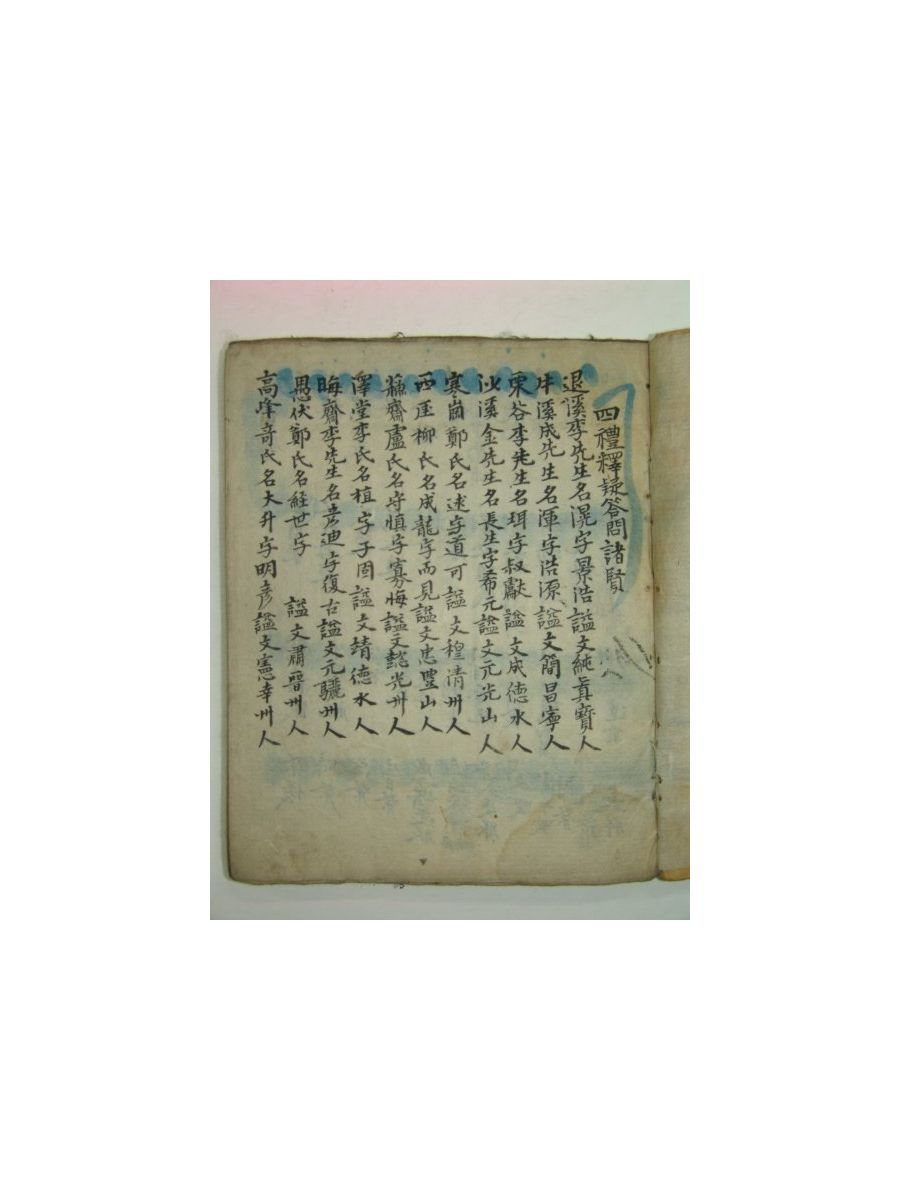 四禮釋疑答問諸賢
退溪李先生名滉字景浩諡文純眞寶人
牛溪成先生名渾字浩源諡文簡昌寧人
栗谷李先生名珥字叔獻諡文成德水人
沙溪金先生名長生字希元諡文元光山人
寒岡鄭氏名逑字道可諡文穆淸州人
西厓柳氏名成龍字而見諡文忠豊山人
蘇齋盧氏名守愼字寡悔諡文懿光州人
澤堂李氏名植字子固諡文靖德水人
晦齋李先生名彦迪字復古諡文元驪州人
愚伏鄭氏名経世字 諡文肅晉州人
高峰奇氏名大升字明彦諡文憲幸州人